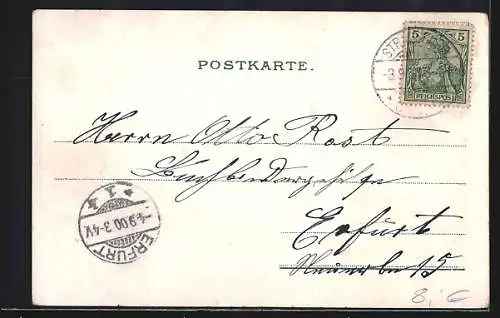 POSTKARTE.
5 5
REICHSPOST
STR
-3.9.
Herrn Otto Rost
Buchbindergehilfe
Erfurt
15
* 1 *
-4.9.00.3-4V.
ERFURT
8,-€